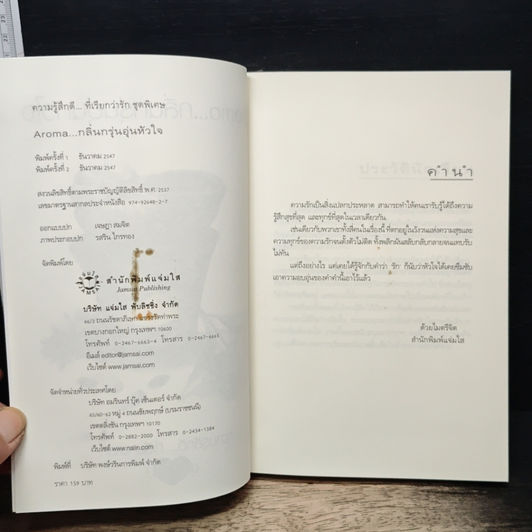 ความรู้สึกดี... ที่เรียกว่ารัก ชุดพิเศษ
Aroma...กลิ่นกรุ่นอุ่นหัวใจ
พิมพ์ครั้งที่ 1 ธันวาคม 2547
พิมพ์ครั้งที่ 2 ธันวาคม 2547
สงวนลิขสิทธิ์ตามพระราชบัญญัติลิขสิทธิ์ พ.ศ. 2537
เลขมาตรฐานสากลประจำหนังสือ 974-92648-2-7
ออกแบบปก เจษฎา สมจิต
ภาพประกอบปก รสริน ไกรทอง
จัดพิมพ์โดย
สำนักพิมพ์แจ่มใส
Jamsai Publishing
บริษัท แจ่มใส พับลิชชิ่ง จำกัด
66/3 ถนนรัชดาภิเษก แขวงวัดท่าพระ
เขตบางกอกใหญ่ กรุงเทพฯ 10600
โทรศัพท์ 0-2467-6663-4 โทรสาร 0-2467-6665
อีเมล์ editor@jamsai.com
เว็บไซต์ www.jamsai.com
จัดจำหน่ายทั่วประเทศโดย
บริษัท อมรินทร์ บุ๊ค เซ็นเตอร์ จำกัด
65/60-62 หมู่ 4 ถนนชัยพฤกษ์ (บรมราชชนนี)
เขตตลิ่งชัน กรุงเทพฯ 10170
โทรศัพท์ 0-2882-2000 โทรสาร 0-2434-1384
เว็บไซต์ www.naiin.com
พิมพ์ที่ บริษัท พงษ์วรินการพิมพ์ จำกัด
ราคา 159 บาท
คำนำ
ความรักเป็นสิ่งแปลกประหลาด สามารถทำให้คนเรารับรู้ได้ถึงความ
รู้สึกสุขที่สุด และทุกข์ที่สุดในเวลาเดียวกัน
เช่นเดียวกับพวกเขาทั้งสี่คนในเรื่องนี้ ที่ตกอยู่ในวังวนแห่งความสุขและ
ความทุกข์ของความรักจนดึงตัวไม่ติด ทั้งพลิกผันสลับกลับกลายจนแทบรับ
ไม่ทัน
แต่ถึงอย่างไร แค่เคยได้รู้จักกับคำว่า 'รัก' ก็นับว่าหัวใจได้เคยซึมซับ
เอาความอบอุ่นของคำคำนี้เอาไว้แล้ว
ด้วยไมตรีจิต
สำนักพิมพ์แจ่มใส